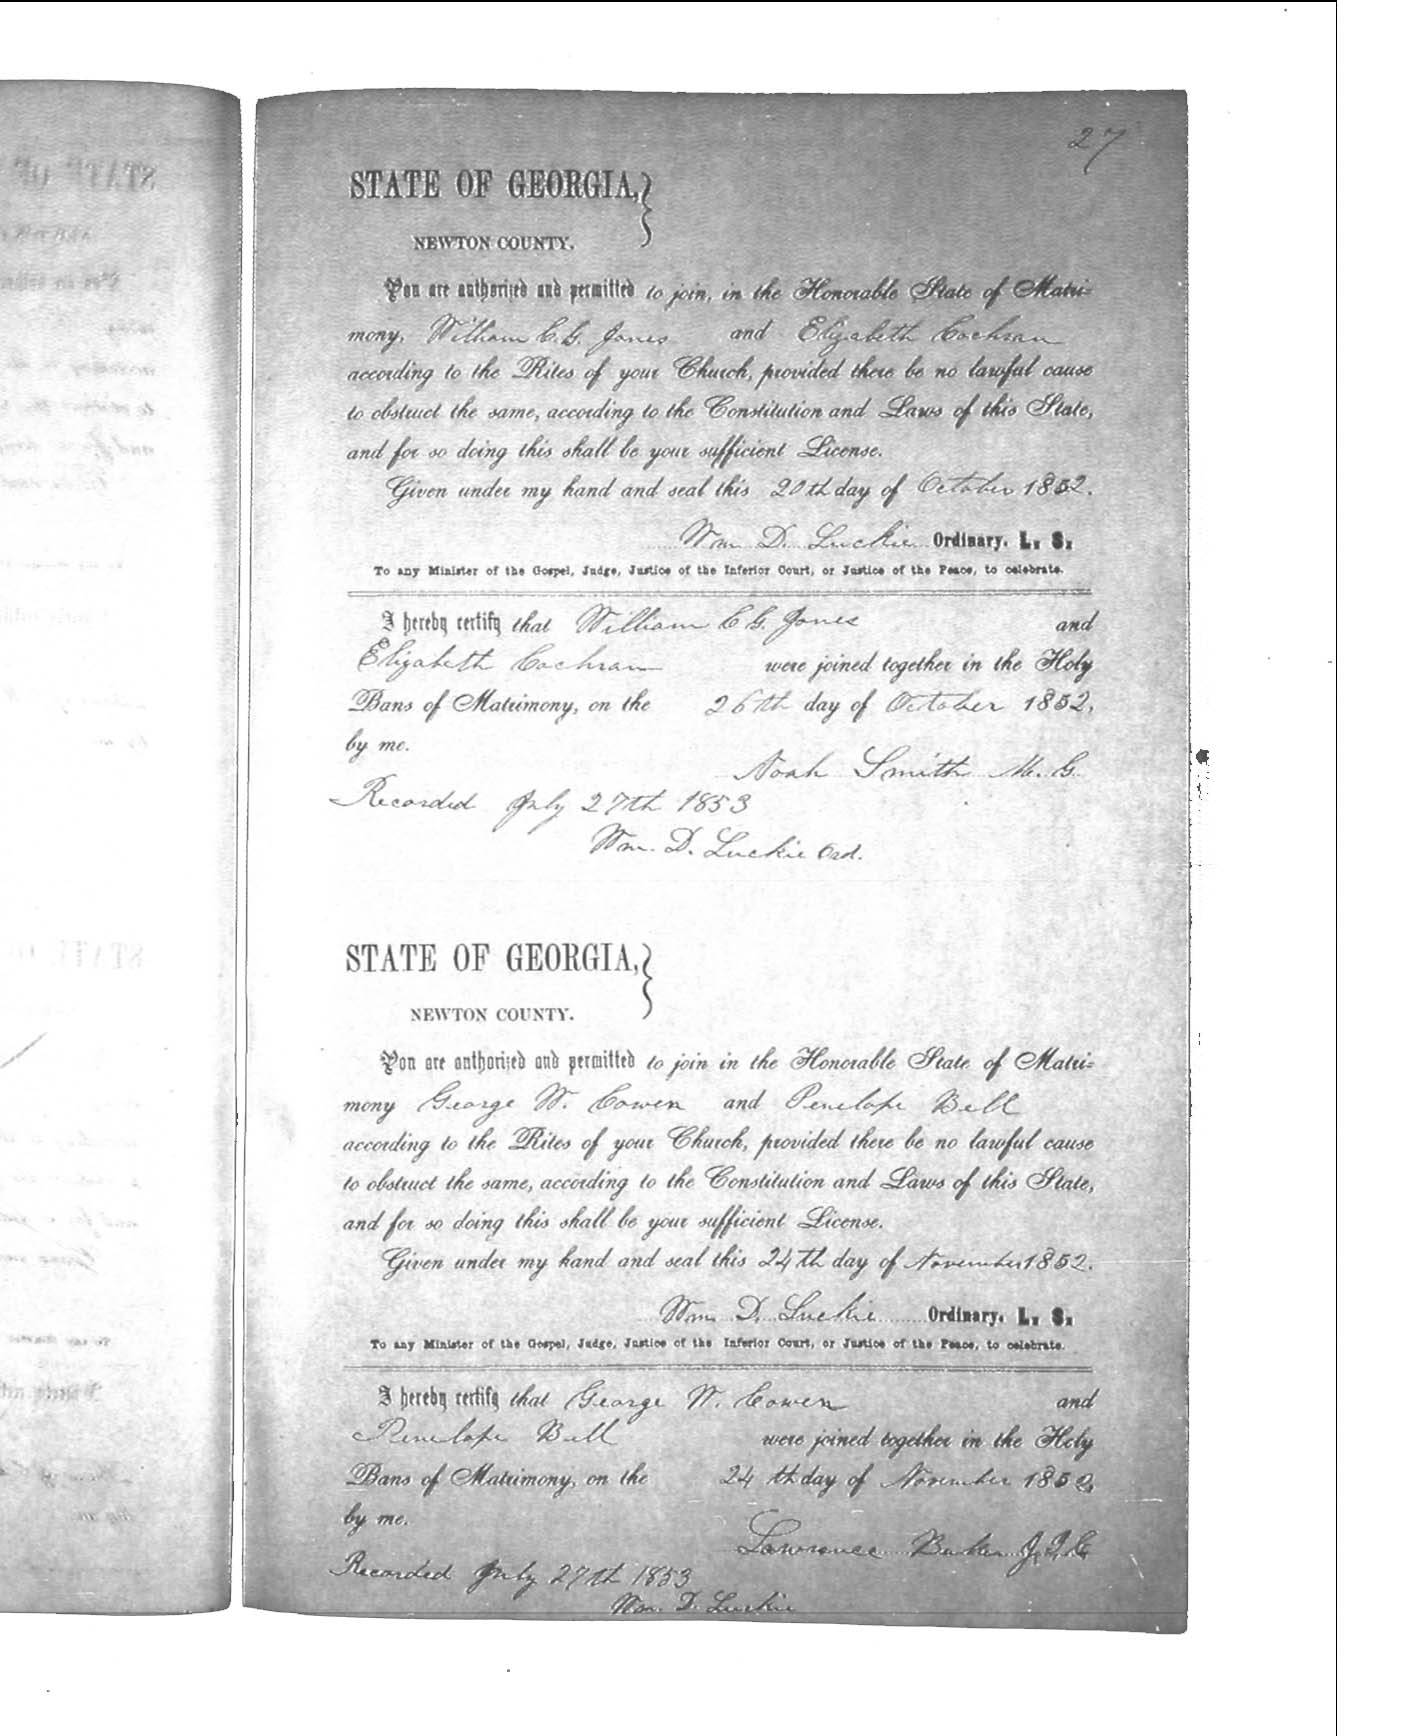 27
STATE OF GEORGIA,
NEWTON COUNTY.
You are authorized and permitted to join, in the Honorable State of Matri=
mony, William C. G. Jones and Elizabeth Cochran
according to the Rites of your Church, provided there be no lawful cause
to obstruct the same, according to the Constitution and Laws of this State,
and for so doing this shall be your sufficient License.
Given under my hand and seal this 20th day of October 1852.
Wm D. Luckie Ordinary. L. S.
To any Minister of the Gospel, Judge, Justice of the Inferior Court, or Justice of the Peace, to celebrate.
I hereby certify that William C G. Jones and
Elizabeth Cochran were joined together in the Holy
Bans of Matrimony, on the 26th day of October 1852,
by me.
Noah Smith M. G.
Recorded July 27th 1853
Wm. D. Luckie Ord.
STATE OF GEORGIA,
NEWTON COUNTY.
You are authorized and permitted to join in the Honorable State of Matri=
mony George W. Cowen and Penelope Bell
according to the Rites of your Church, provided there be no lawful cause
to obstruct the same, according to the Constitution and Laws of this State,
and for so doing this shall be your sufficient License.
Given under my hand and seal this 24th day of November 1852.
Wm D. Luckie Ordinary. L. S.
To any Minister of the Gospel, Judge, Justice of the Inferior Court, or Justice of the Peace, to celebrate.
I hereby certify that George W. Cowen and
Penelope Bell were joined together in the Holy
Bans of Matrimony, on the 24 th day of November 1852,
by me.
Lawrence Baker J. I. C.
Recorded July 27th 1853
Wm. D. Luckie